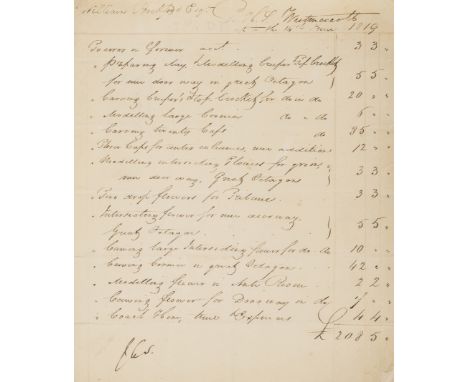 William Esqr Westmacott
1819
acct 3 3 "
" preparing & Modelling Crocketts
for new door way in great Octagon 5 5 "
" Carving & Crockets for door do 20 " "
" Modelling large Cornice do " do 6 " "
" Carving twenty Caps do 35 " "
" Caps for outer entrance, new addition 12 " "
" Modelling intersecting Flowers for
new door way, Great Octagon 3 3 "
" drop flowers for 3 3 "
" Intersecting flower for new doorway
Great Octagon 5 5 "
" Carving large Intersecting flower for do do 10 " "
" Carving Cornice in great Octagon 42 " "
" Modelling flowers in Anti Room 2 2 "
" Carving flower for Doorway in do 7 " "
" Coach Hire, time & Expences 4 4 "
£ 208 5 "